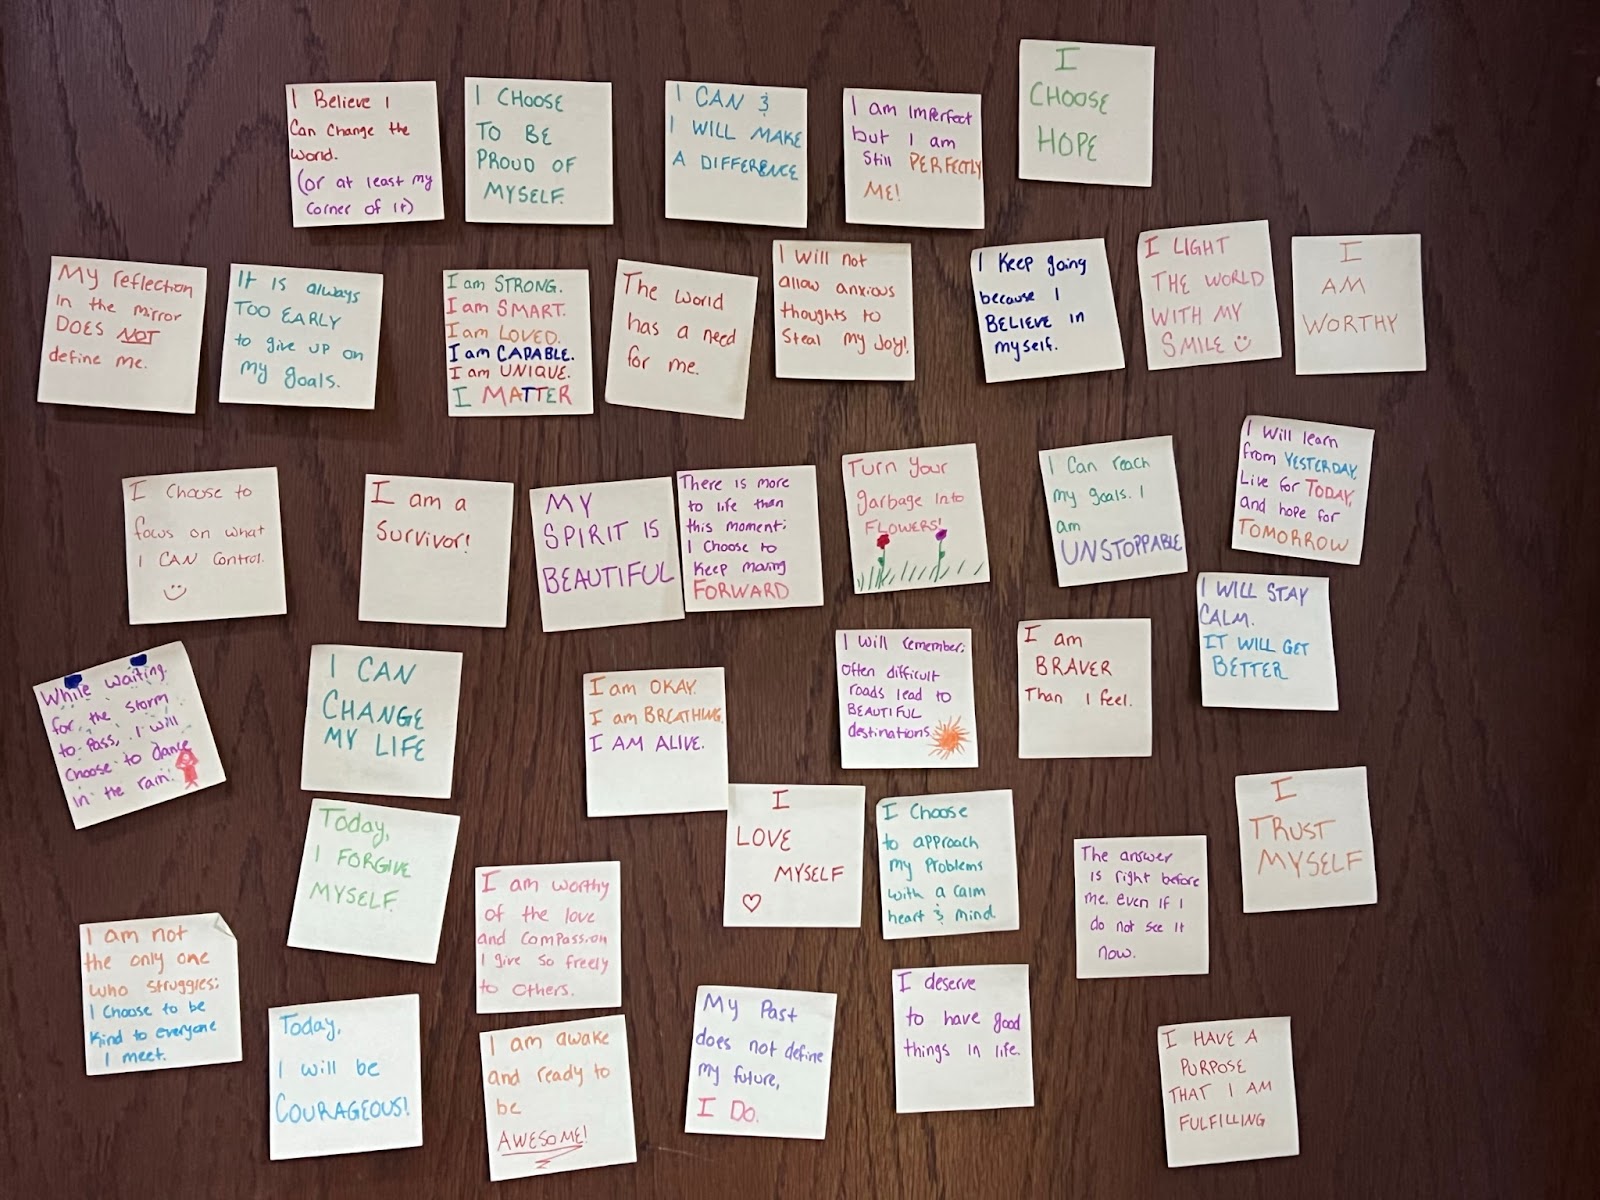 I Believe I
Can Change the
World.
(or at least my
Corner of it)
I CHOOSE
TO BE
PROUD OF
MYSELF.
I CAN &
I WILL MAKE
A DIFFERENCE
I am Imperfect
but I am
Still PERFECTLY
ME!
I
CHOOSE
HOPE
My reflection
in the mirror
DOES NOT
define me.
It is always
TOO EARLY
to give up on
my goals.
I am STRONG.
I am SMART.
I am LOVED.
I am CAPABLE.
I am UNIQUE.
I MATTER
The world
has a need
for me.
I Will not
allow anxious
thoughts to
Steal my Joy!
I Keep going
because I
BELIEVE in
myself.
I LIGHT
THE WORLD
WITH MY
SMILE
I
AM
WORTHY
I Choose to
focus on what
I CAN Control.
I am a
Survivor!
MY
SPIRIT IS
BEAUTIFUL
There is more
to life than
this moment;
I Choose to
Keep moving
FORWARD
Turn Your
garbage into
FLOWERS!
I Can reach
my goals. I
am
UNSTOPPABLE
I Will learn
from YESTERDAY,
Live for TODAY,
and hope for
TOMORROW
I WILL STAY
CALM.
IT WILL GET
BETTER
While waiting
for the storm
to pass, I will
Choose to dance
in the rain.
I CAN
CHANGE
MY LIFE
I am OKAY.
I am BREATHING.
I AM ALIVE.
I will remember:
Often difficult
roads lead to
BEAUTIFUL
destinations.
I am
BRAVER
Than I feel.
Today,
I FORGIVE
MYSELF.
I am worthy
of the love
and compassion
I give so freely
to others.
I
LOVE
MYSELF
I Choose
to approach
my Problems
with a calm
heart & mind.
The answer
is right before
me even if I
do not see it
now.
I
TRUST
MYSELF
I am not
the only one
who struggles;
I Choose to be
Kind to everyone
I meet.
Today,
I will be
COURAGEOUS!
I am awake
and ready to
be
AWESOME!
My Past
does not define
my future,
I DO.
I deserve
to have good
things in life.
I HAVE A
PURPOSE
THAT I AM
FULFILLING